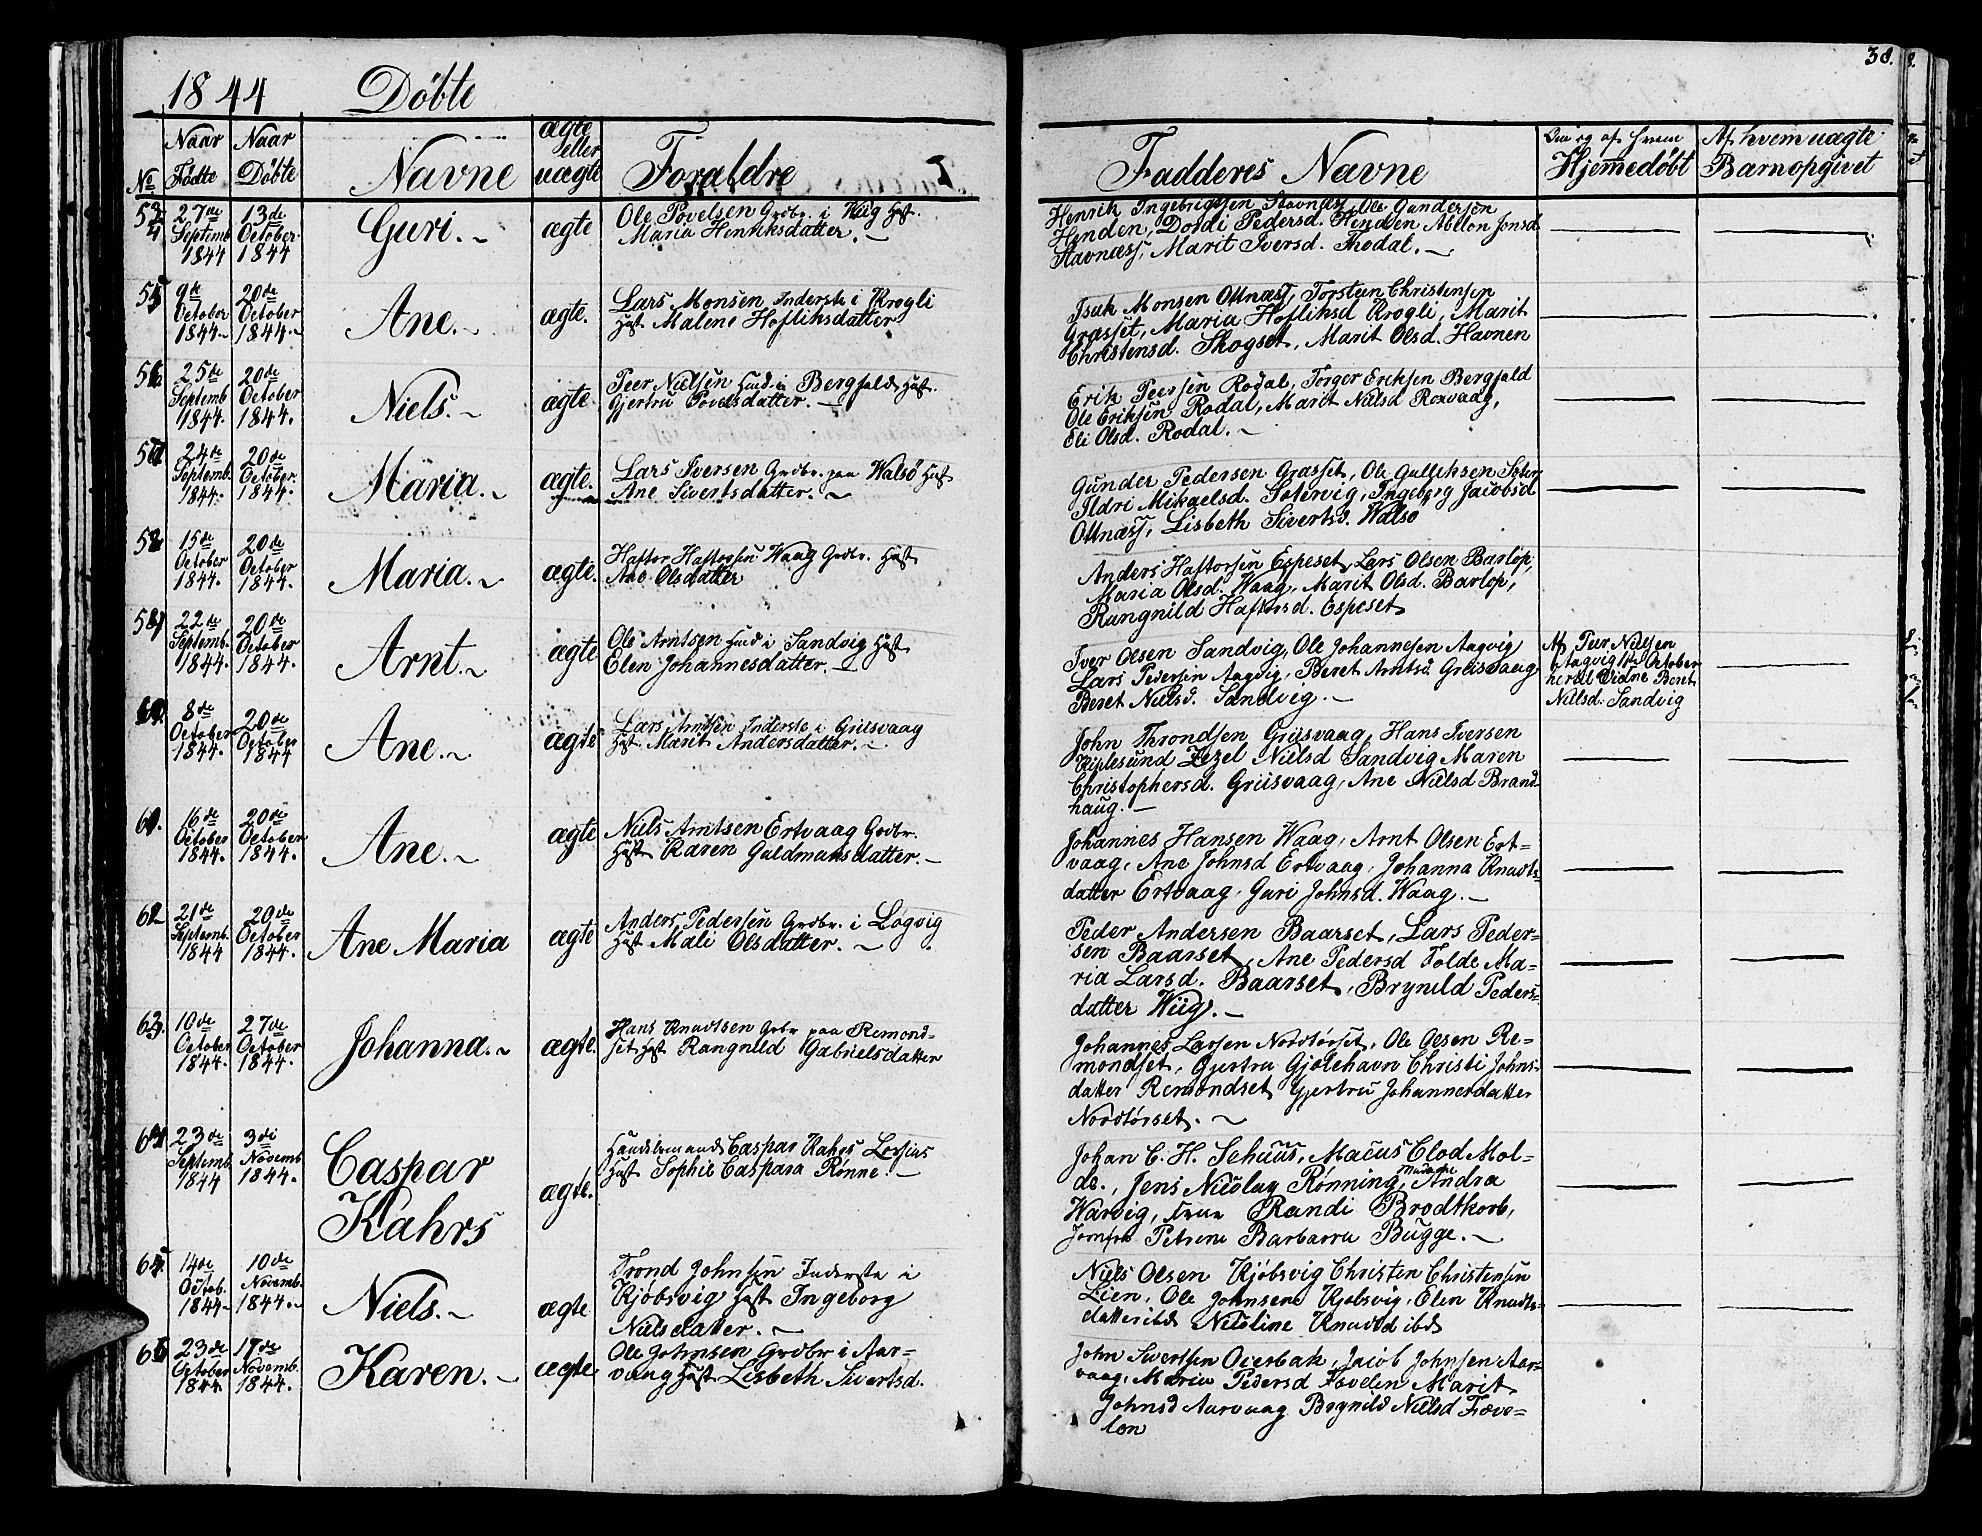 1844 Døbte
38.
No
Naar Fødte
Naar Døbte
Navne
ægte eller uægte
Forældre
Fadderes Navne
Om og af hvem Hjemmedøbt
Af hvem uægte Barn opgivet
54
27de Septemb. 1844
13de October 1844
Guri.
ægte
Ole Povelsen Grdbr. i Wiig Hust.
Maria Henriksdatter.
Henrik Ingebrigtsen Stavnæss, Ole Gundersen
Henden, Dordi Pedersd. Henden Abelon Jonsd.
Stavnæss, Marit Iversd. Thodal.
55
9de October 1844
20de October 1844
Ane.
ægte.
Lars Monsen Inderste i Krogli
Hust Malene Hoflihsdatter
Isak Monsen Ottnæss, Torsteen Christensen
Græsset, Maria Hoflihsd Krogli, Marit
Christensd. Skogset, Marit Olsd. Havnen
56
25de Septemb 1844.
20de October 1844.
Niels.
ægte
Peer Nielsen Huusd i Bergfald Hust.
Gjertru Povelsdatter.
Erik Peersen Rodal, Torger Eriksen Bergfald
Ole Eriksen Rodal, Marit Nielsd Roxvaag,
Eli Olsd. Rodal.
57
24de Septemb. 1844.
20de October 1844.
Maria.
ægte.
Lars Iversen Grdbr. paa Walsø Hust
Ane Sivertsdatter.
Gunder Pedersen Græsset, Ole Gulliksen
Ildri Mikaelsd. Solervig, Ingeborg Jacobsd
Ottnæss, Lisbeth Sivertsd. Walsø
58
15de October 1844.
20de October 1844.
Maria.
ægte.
Haftor Haftorsen Waag Grdbr. Hust
Ane Olsdatter
Anders Haftorsen Espeset, Lars Olsen Barlop,
Maria Olsd. Waag, Marit Olsd. Barlop,
Rangnild Haftorsd. Espeset
59
22de Septemb. 1844.
20de October 1844.
Arnt.
ægte
Ole Arntsen Huusd i Sandvig Hust
Elen Johannesdatter.
Iver Olsen Sandvig, Ole Johannesen Aagvig
Lars Pedersen Aagvig, Beret Arntsd. Griisvaag
Beret Nielsd. Sandvig.
Af Peer Nielsen
Aagvig 1ste October
hertil Vidne Beret
Nielsd. Sandvig
60
8de October 1844.
20de October 1844
Ane.
ægte
Lars Arntsen Inderste i Griisvaag
Hust. Marit Andersdatter.
John Throndsen Griisvaag, Hans Iversen
Zezel Nielsd Sandvig Maren
Christophersd. Griisvaag, Ane Nielsd Brand
haug.
61.
16de October 1844.
20de October 1844.
Ane.
ægte
Niels Arntsen Ertvaag Grdbr.
Hust Karen Guldmansdatter.
Johannes Hansen Waag, Arnt Olsen Ert=
vaag, Ane Johnsd Ertvaag, Johanna Knudts=
datter Ertvaag, Guri Johnsd. Waag.
62
21de Septemb. 1844
20de October 1844.
Ane Maria
ægte
Anders Pedersen Grdbr. i Logvig
Hust Mali Olsdatter.
Peder Andersen Baarset, Lars Peder=
sen Baarset, Ane Pedersd Folde Ma=
ria Larsd. Baarset, Brynild Peders=
datter Wiig.
63.
10de October 1844.
27de October 1844.
Johanna.
ægte.
Hans Knudtsen Grbr paa Remond=
set Hust Rangnild Gabrielsdatter
Johannes Larsen Nordtørset, Ole Olsen Re=
mondset, Gjertru Gjølehavn Christi Johns=
datter Remondset Gjertru Johannesdatter
Nordtørset.
64
23de Septemb 1844
3de Novemb 1844.
Caspar
Kahrs
ægte.
Handelsmand Caspar Kahrs Lossius
Hust Sophie Caspara Rønne.
Johan C. H. Schuus, Macus Clod Mol=
de., Jens Nicolay Rønning, Madame Andrea
Warvig, Frue Randi Brodtkorb,
Jomfru Petrine Barbarra Bugge.
65
14de Octob. 1844
10de Novemb. 1844.
Niels.
ægte
Trond Johnsen Inderste i
Kjøbsvig Hust Ingeborg
Nielsdatter.
Niels Olsen Kjøbsvig Christen Christensen
Lien, Ole Johnsen Kjøbsvig, Elen Knudts=
datter ibd Nicoline Knudtd ibd
66
23de October 1844.
17de Novemb. 1844.
Karen.
ægte
Ole Johnsen Grdbr i Aar=
vaag Hust Lisbeth Sivertsd.
John Sivertsen Overbak, Jacob Johnsen Aar=
vaag, Maria Pedersd Favelen Marit
Johnsd Aarvaag Brynild Nielsd Fæve=
len